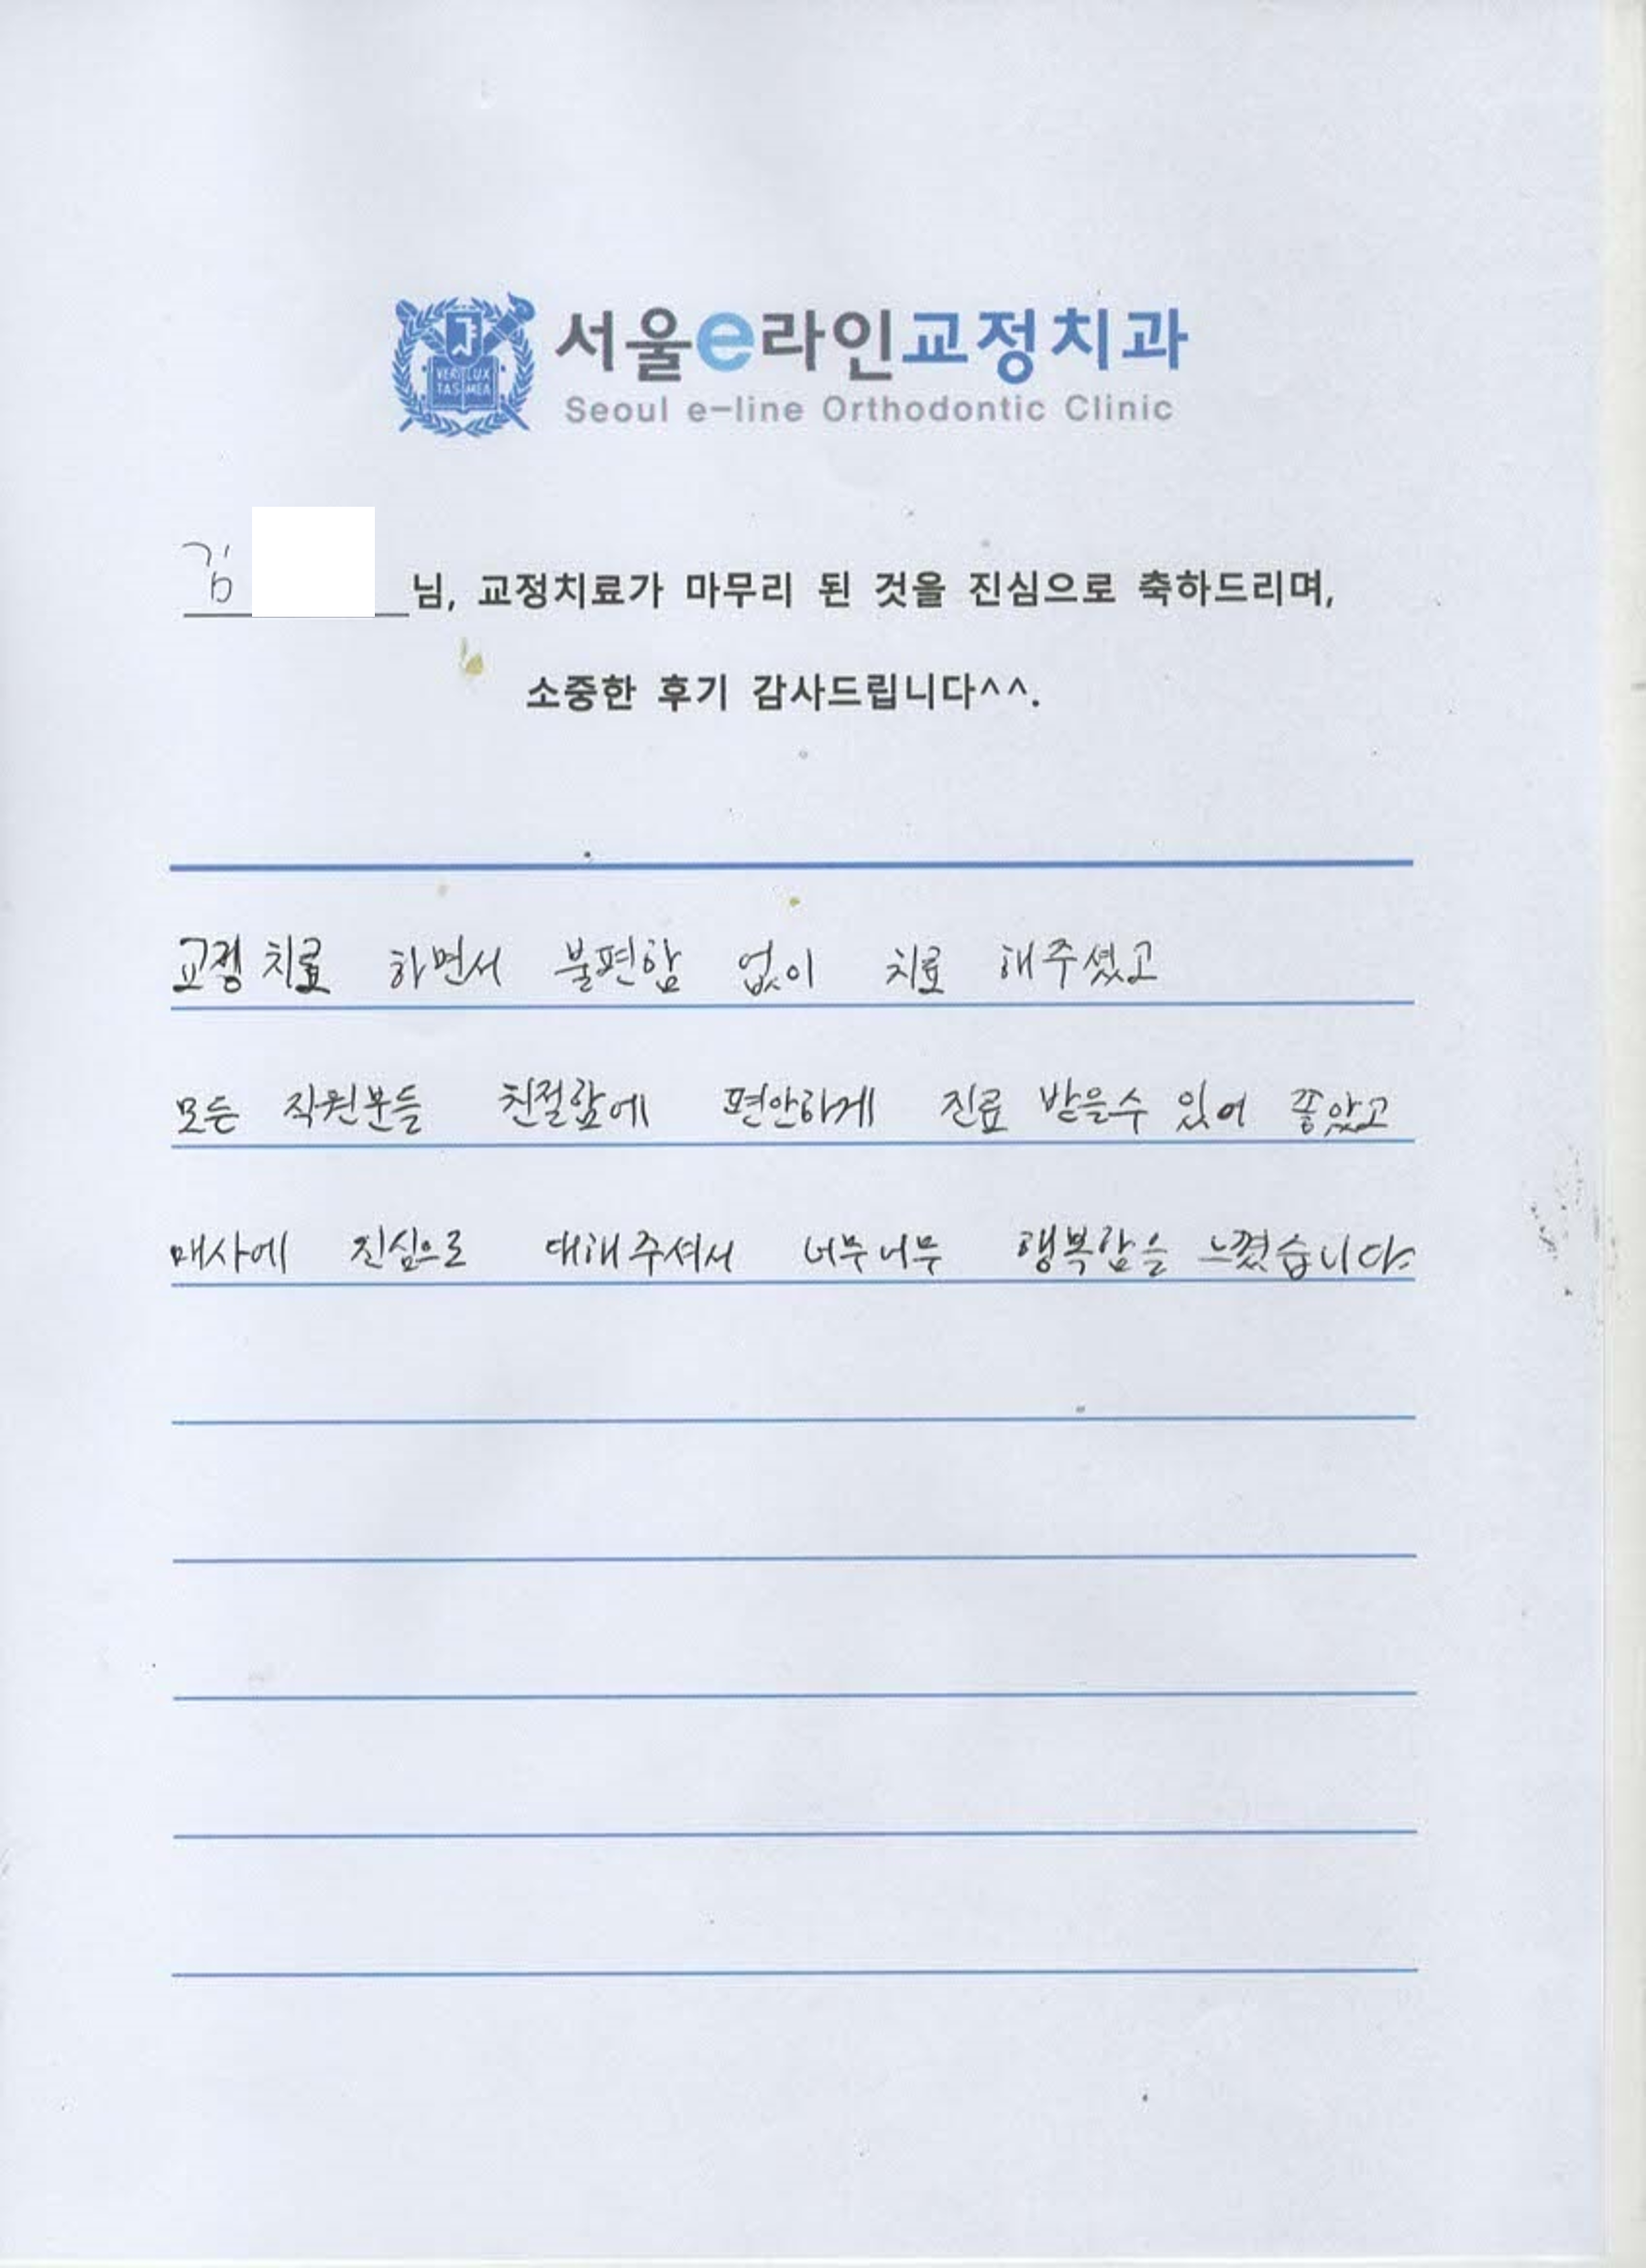 VERI LUX
TAS MEA
서울e라인교정치과
Seoul e-line Orthodontic Clinic
김 님, 교정치료가 마무리 된 것을 진심으로 축하드리며,
소중한 후기 감사드립니다^^.
교정 치료 하면서 불편함 없이 치료 해주셨고
모든 직원분들 친절함에 편안하게 진료 받을수 있어 좋았고
매사에 진심으로 대해주셔서 너무너무 행복함을 느꼈습니다.